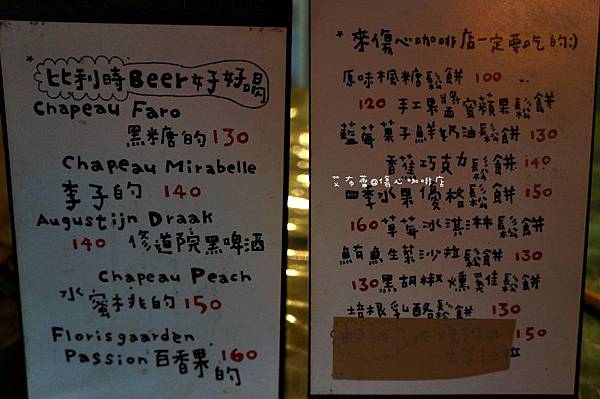 * 比利時Beer好好喝
Chapeau Faro
黑糖的 130
Chapeau Mirabelle
李子的 140
Augustijn Draak
140 修道院黑啤酒
Chapeau Peach
水蜜桃的 150
Florisgaarden
Passion 百香果的 160
* 來傷心咖啡店一定要吃的:)
原味楓糖鬆餅 100
120 手工果醬蜜蘋果鬆餅
藍莓菓子鮮奶油鬆餅 130
香蕉巧克力鬆餅 140
艾布蕾@傷心咖啡店
四季水果優格鬆餅 150
160 草莓冰淇淋鬆餅
鮪魚生菜沙拉鬆餅 130
130 黑胡椒燻雞鬆餅
培根乳酪鬆餅 130
150